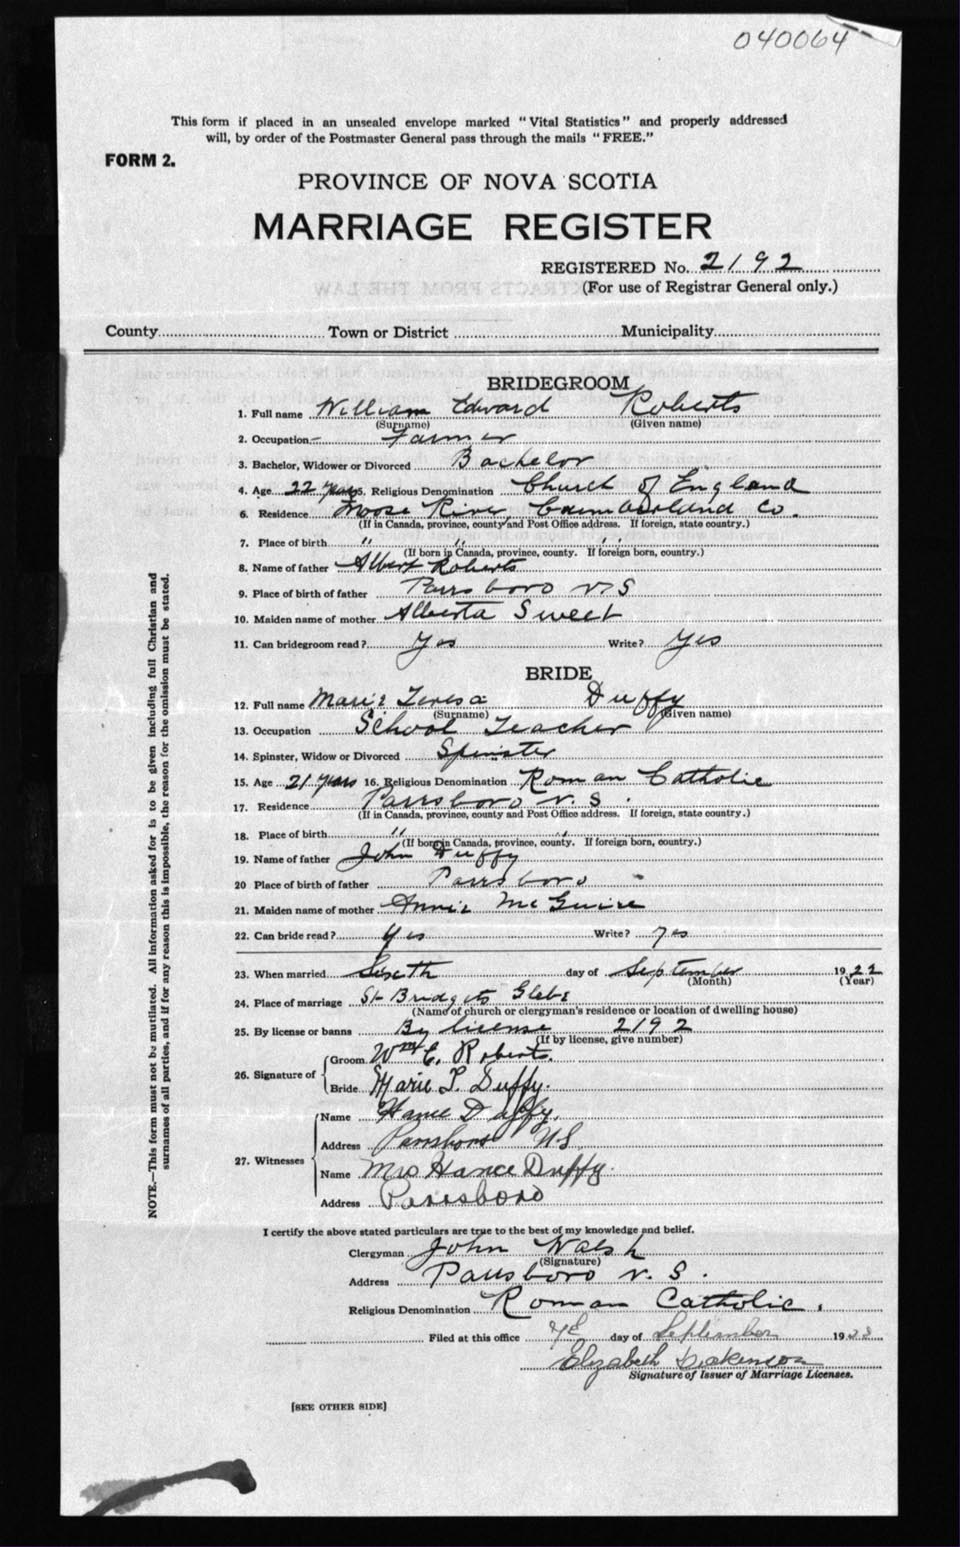 040064
This form if placed in an unsealed envelope marked "Vital Statistics" and properly addressed
will, by order of the Postmaster General pass through the mails "FREE."
FORM 2.
PROVINCE OF NOVA SCOTIA
MARRIAGE REGISTER
REGISTERED No. 2192
(For use of Registrar General only.)
County Town or District Municipality
BRIDEGROOM
1. Full name William Edward Roberts
(Surname) (Given name)
2. Occupation Farmer
3. Bachelor, Widower or Divorced Bachelor
4. Age 22 years 5. Religious Denomination Church of England
6. Residence Moose River Cumberland Co.
(If in Canada, province, county and Post Office address. If foreign, state country.)
7. Place of birth " " "
(If born in Canada, province, county. If foreign born, country.)
8. Name of father Albert Roberts
9. Place of birth of father Parrsboro N S
10. Maiden name of mother Alberta Sweet
11. Can bridegroom read? Yes Write? Yes
BRIDE
12. Full name Marie Teresa Duffy
(Surname) (Given name)
13. Occupation School Teacher
14. Spinster, Widow or Divorced Spinster
15. Age 21 years 16. Religious Denomination Roman Catholic
17. Residence Parrsboro N. S.
(If in Canada, province, county and Post Office address. If foreign, state country.)
18. Place of birth " "
(If born in Canada, province, county. If foreign born, country.)
19. Name of father John Duffy
20 Place of birth of father Parrsboro
21. Maiden name of mother Annie McGuire
22. Can bride read? Yes Write? Yes
23. When married Sixth day of September 1922
(Month) (Year)
24. Place of marriage St Bridgets Glebe
(Name of church or clergyman's residence or location of dwelling house)
25. By license or banns By license 2192
(If by license, give number)
26. Signature of Groom Wm E. Roberts.
Bride Marie T. Duffy.
27. Witnesses Name Hance Duffy.
Address Parrsboro NS
Name Mrs Hance Duffy.
Address Parrsboro
I certify the above stated particulars are true to the best of my knowledge and belief.
Clergyman John Walsh
(Signature)
Address Parrsboro N. S.
Religious Denomination Roman Catholic.
Filed at this office day of September 19
Elizabeth Dickenson
Signature of Issuer of Marriage Licenses.
[SEE OTHER SIDE]
NOTE.—This form must not be mutilated. All information asked for is to be given including full Christian and
surnames of all parties, and if for any reason this is impossible, the reason for the omission must be stated.